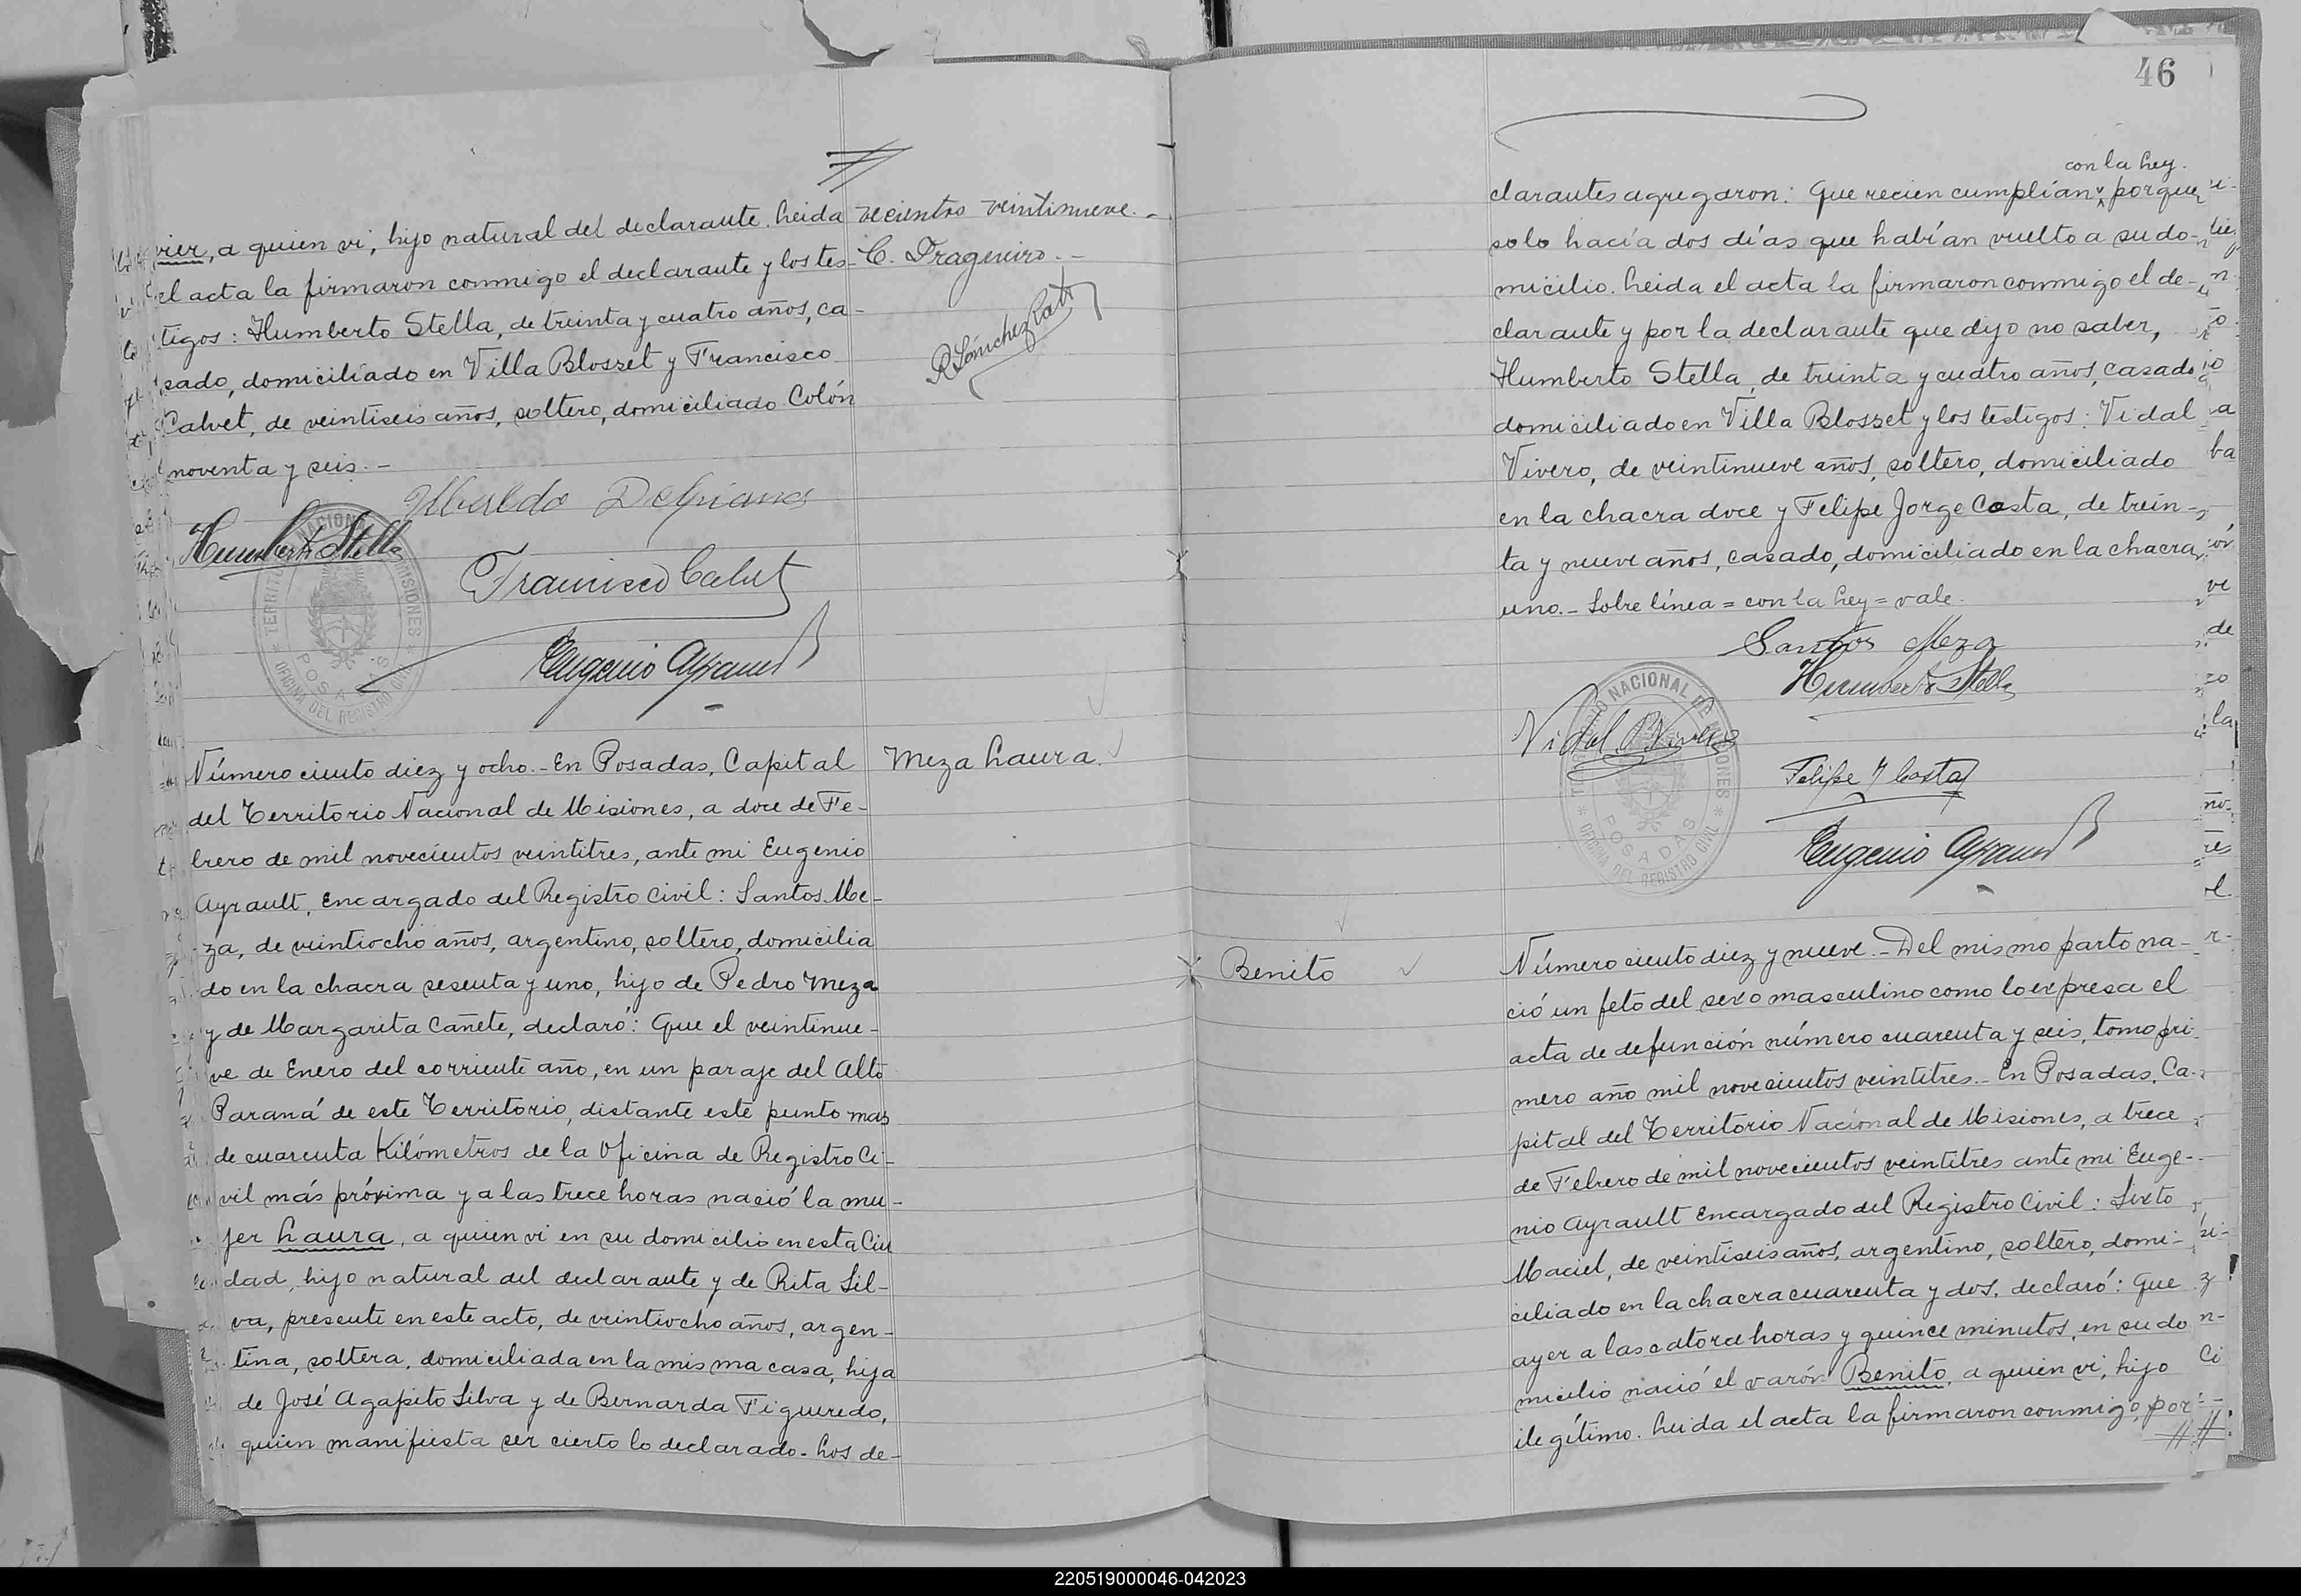 vier, a quien vi, hijo natural del declarante. Leida
el acta la firmaron conmigo el declarante y los tes-
tigos: Humberto Stella, de treinta y cuatro años, ca-
sado, domiciliado en Villa Blosset y Francisco
Calvet, de veintiseis años, soltero, domiciliado Colón
noventa y seis.-
vecientos veintinueve.-
C. Dragneiro.-
Humberto Stella
Francisco Calvet
Eugenio Ayrault
TERRITORIO NACIONAL DE MISIONES
POSADAS
OFICINA DEL REGISTRO CIVIL
Meza Laura.
Número ciento diez y ocho.- En Posadas, Capital
del Territorio Nacional de Misiones, a doce de Fe-
brero de mil novecientos veintitres, ante mi Eugenio
Ayrault, Encargado del Registro Civil: Santos Me-
za, de veintiocho años, argentino, soltero, domicilia
do en la chacra sesenta y uno, hijo de Pedro Meza
y de Margarita Cañete, declaró: Que el veintinue-
ve de Enero del corriente año, en un paraje del Alto
Paraná de este Territorio, distante este punto mas
de cuarenta Kilómetros de la Oficina de Registro Ci-
vil más próxima y a las trece horas nació la mu-
jer Laura, a quien vi en su domicilio en esta Ciu
dad, hijo natural del declarante y de Rita Sil-
va, presente en este acto, de veintiocho años, argen-
tina, soltera, domiciliada en la misma casa, hija
de José Agapito Silva y de Bernarda Figueredo,
quien manifiesta ser cierto lo declarado. Los de-
46
con la Ley.
clarantes agregaron: Que recien cumplían porque
solo hacía dos días que habían vuelto a su do-
micilio. Leida el acta la firmaron conmigo el de-
clarante y por la declarante que dijo no saber,
Humberto Stella, de treinta y cuatro años, casado
domiciliado en Villa Blosset y los testigos: Vidal
Vivero, de veintinueve años, soltero, domiciliado
en la chacra doce y Felipe Jorge Costa, de trein-
ta y nueve años, casado, domiciliado en la chacra
uno.- Sobre línea = con la Ley = vale.
Santos Meza
Humberto Stella
Felipe J Costa
Eugenio Ayrault
TERRITORIO NACIONAL DE MISIONES
POSADAS
OFICINA DEL REGISTRO CIVIL
Benito
Número ciento diez y nueve.- Del mismo parto na-
ció un feto del sexo masculino como lo expresa el
acta de defunción número cuarenta y seis, tomo pri
mero año mil novecientos veintitres.- En Posadas, Ca-
pital del Territorio Nacional de Misiones, a trece
de Febrero de mil novecientos veintitres ante mi Euge-
nio Ayrault Encargado del Registro Civil: Sixto
Maciel, de veintiseis años, argentino, soltero, domi-
ciliado en la chacra cuarenta y dos, declaró: Que
ayer a las catorce horas y quince minutos, en su do
micilio nació el varón Benito, a quien vi, hijo
ilegítimo. Leida el acta la firmaron conmigo, por
220519000046-042023